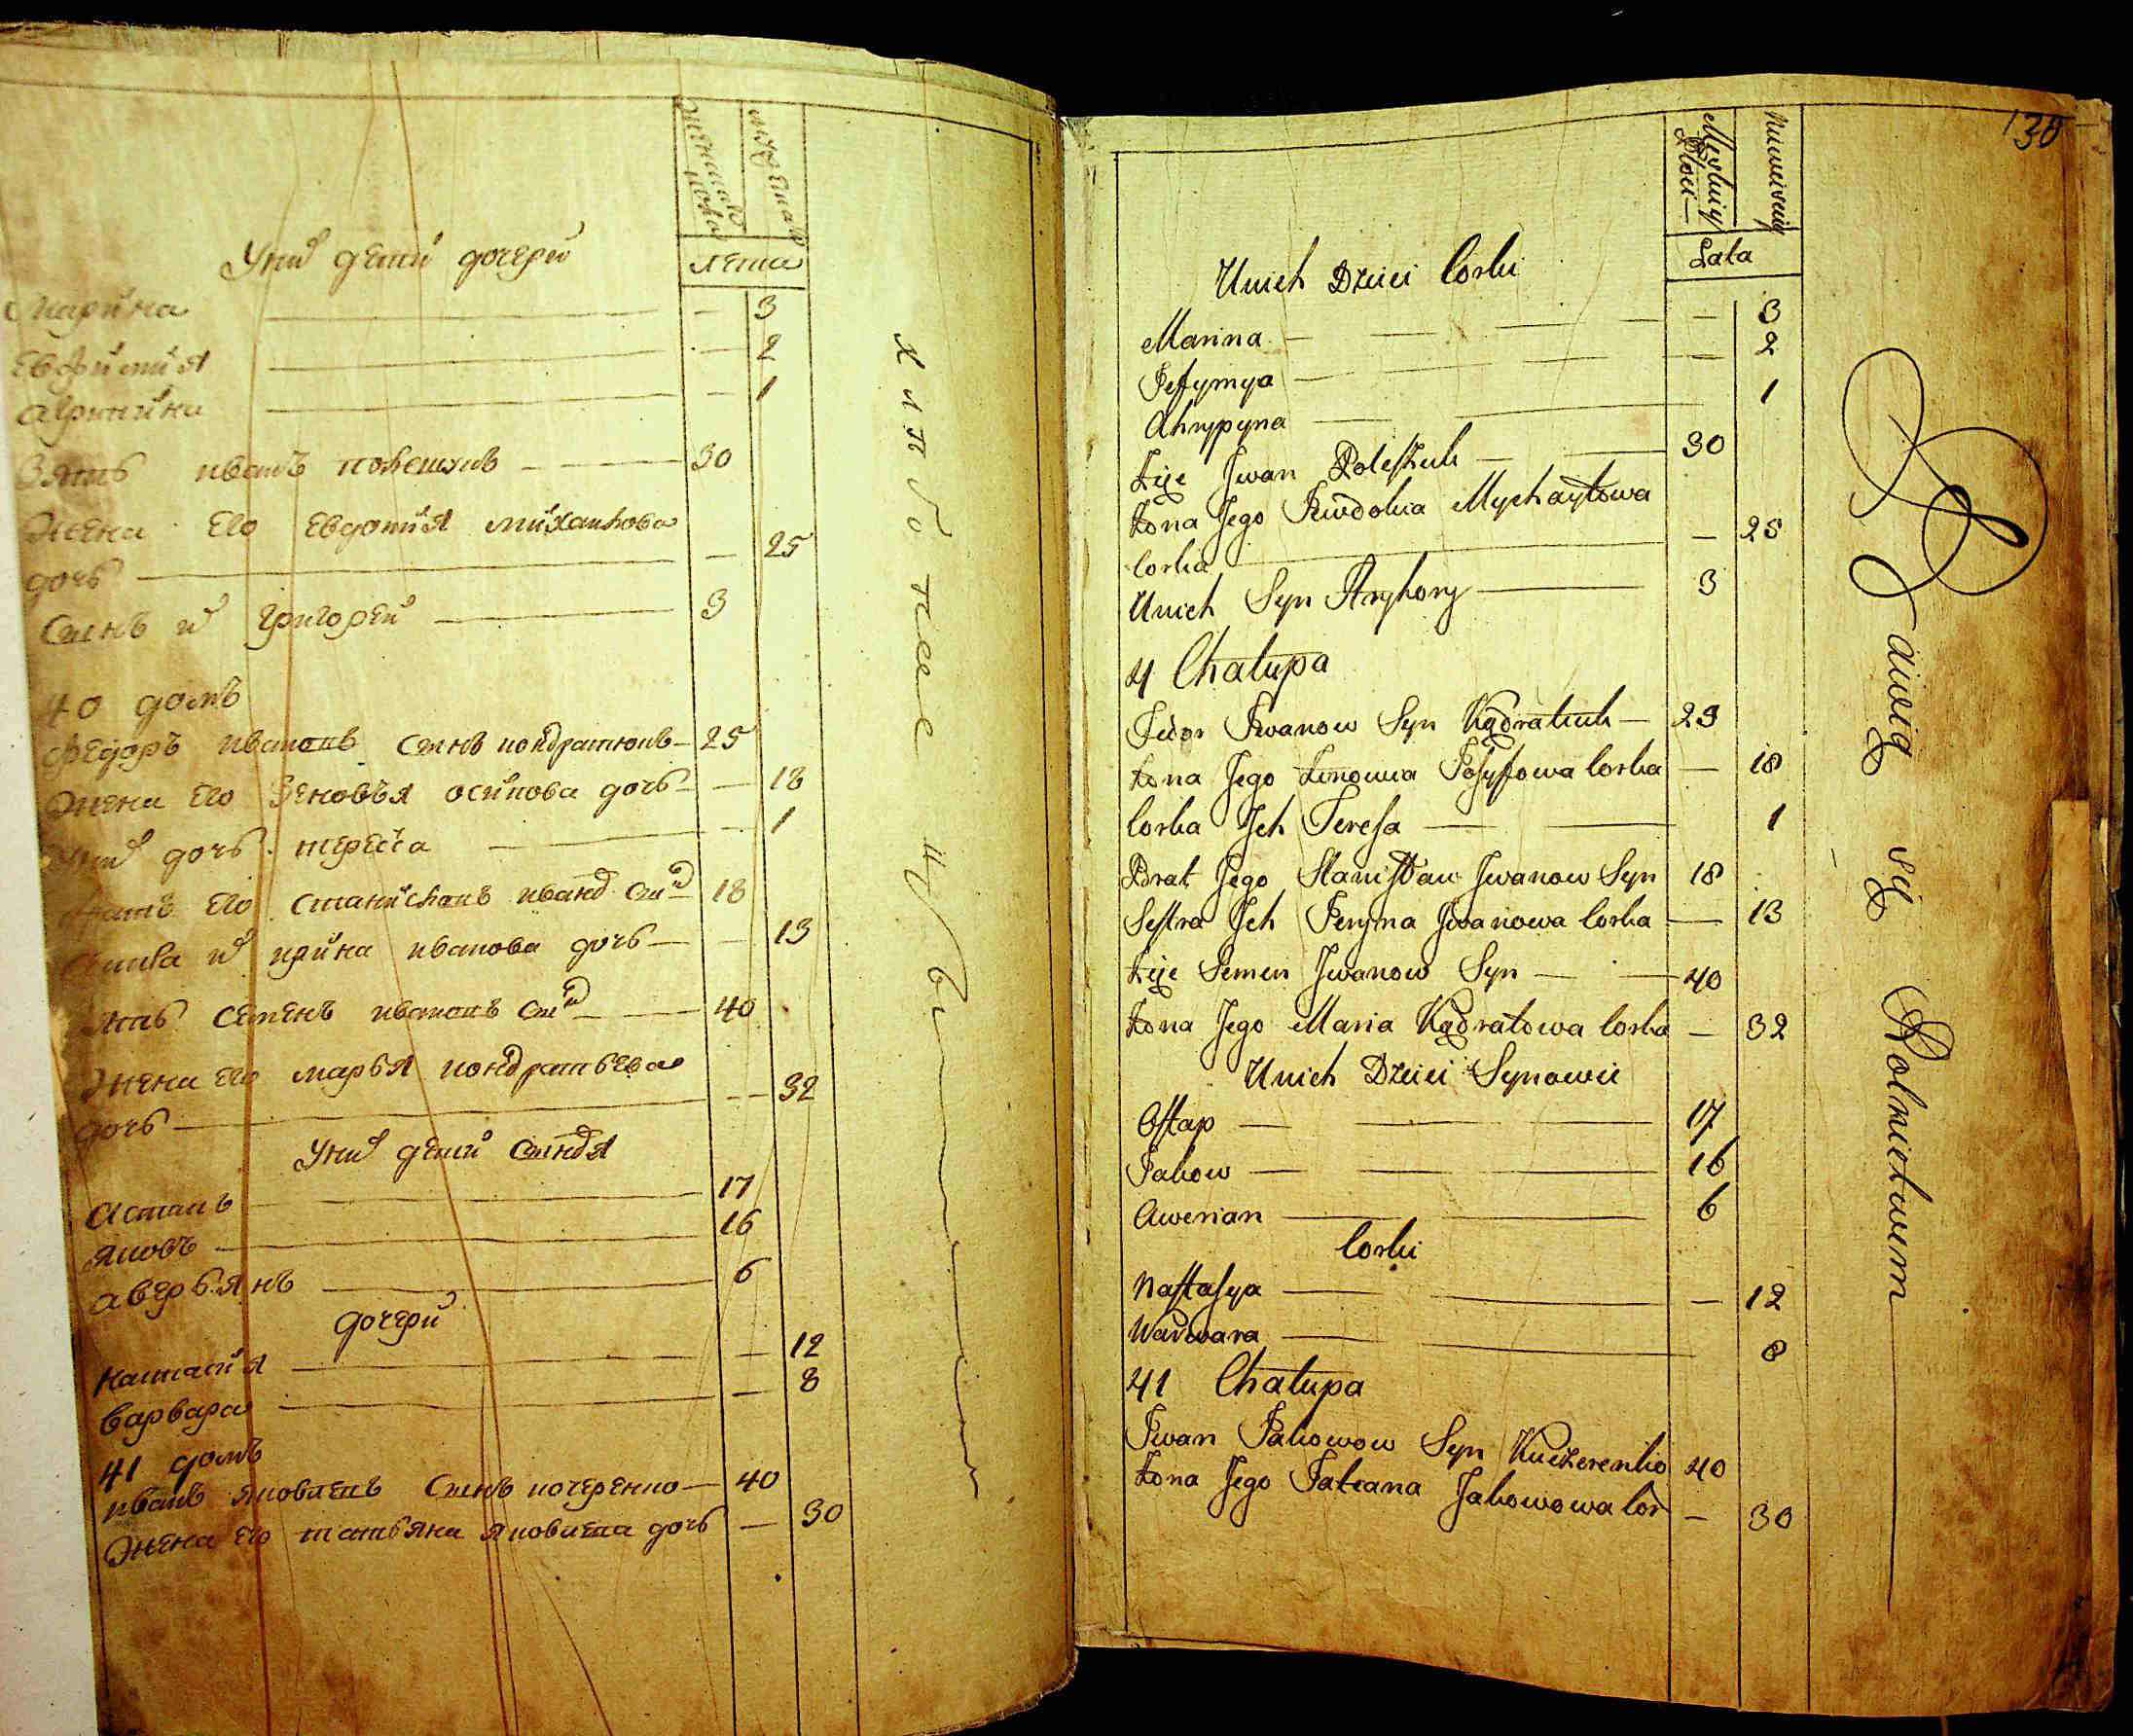 женска
пола
мужеска
лета
У них дети дочери
Марина — — 3
Евфимия — — 2
Агрипина — — 1
Зять иванъ полещукъ — 30
Жена его евдокия михайлова
дочь — — 25
Сынъ их григорей — 3
40 домъ
федоръ ивановъ сынъ кондратюкъ — 25
Жена его Зеновья осипова дочь — — 18
дочь тереса — — 1
братъ его станиславъ иванов сын — 18
их ирина иванова дочь — — 13
зять семенъ ивановъ сын — 40
Жена его марья кондратьева
дочь — — 32
У них дети сыновя
Астапъ — 17
яковъ — 16
аверьянъ — 6
дочери
настасия — — 12
варвара — — 8
41 домъ
иванъ яковлевъ сынъ кочеренко — 40
Жена его татьяна яковлева дочь — — 30
130
Męskiey
Płci
Niewieściey
Lata
Unich Dzieci Corki
Marina — — 3
Jefymya — — 2
Ahrypyna — 1
Zięć Jwan Poleszuk — 30
Żona Jego Jewdokia Mychayłowa
Corka — — 25
Unich Syn Hryhory — 3
4 Chałupa
Fedor Iwanow Syn Kądratiuk — 23
Żona Jego Zenowia Josyfowa Corka — 18
Corka Jch Teresa — 1
Brat Jego Stanisław Jwanow Syn 18
Sestra Jch Jeryna Jwanowa Corka — 13
Zięć Semen Jwanow Syn — 40
Żona Jego Maria Kądratowa Corka — 32
Unich Dzieci Synowie
Ostap — 17
Jakow — 16
Awerian — 6
Corki
Nastasya — — 12
Warwara — 8
41 Chałupa
Iwan Jakowow Syn Kuczerenko 40
Żona Jego Tateana Jakowowa Cor — 30
Bawią się Rolnictwem